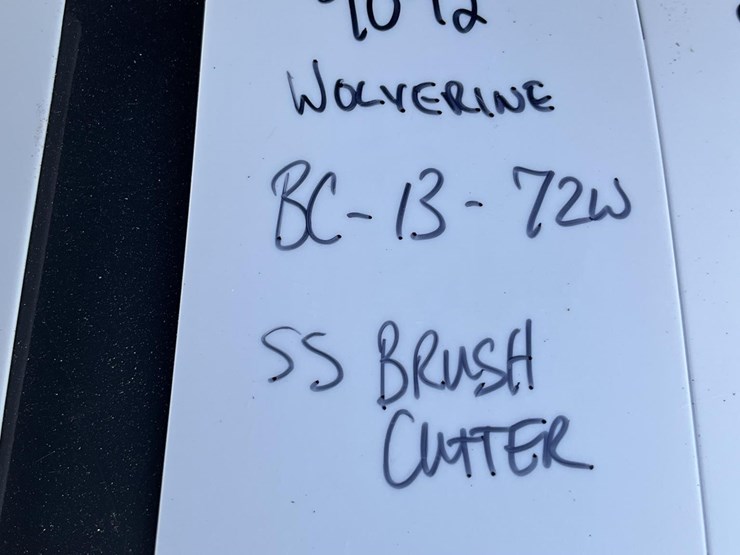 WOLVERINE
BC-13-72W
SS BRUSH
CUTTER